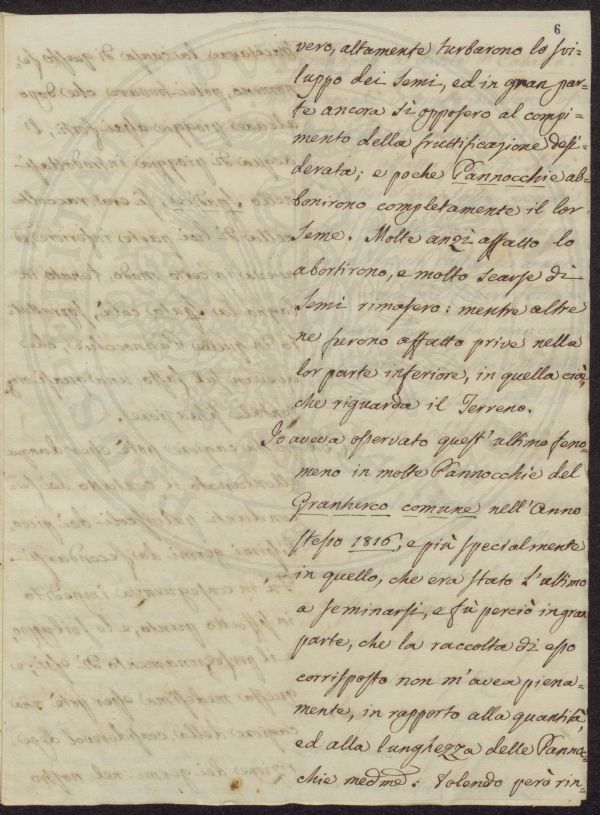 6
vero, altamente turbarono lo svi-
luppo dei Semi, ed in gran par-
te ancora si opposero al compi-
mento della fruttificazione desi-
derata; e poche Pannocchie ab-
bonirono completamente il lor
Seme. Molte anzi affatto lo
abortirono, e molto scarse di
Semi rimasero: mentre altre
ne furono affatto prive nella
lor parte inferiore, in quella cioè,
che riguarda il Terreno.
Io aveva osservato quest'ultimo feno-
meno in molte Pannocchie del
Granturco comune nell'Anno
stesso 1816, e più specialmente
in quello, che era stato l'ultimo
a seminarsi, e fù perciò in gran
parte, che la raccolta di esso
corrisposto non m'avea piena-
mente, in rapporto alla quantità,
ed alla lunghezza delle Panno-
chie medme. Volendo però rin-